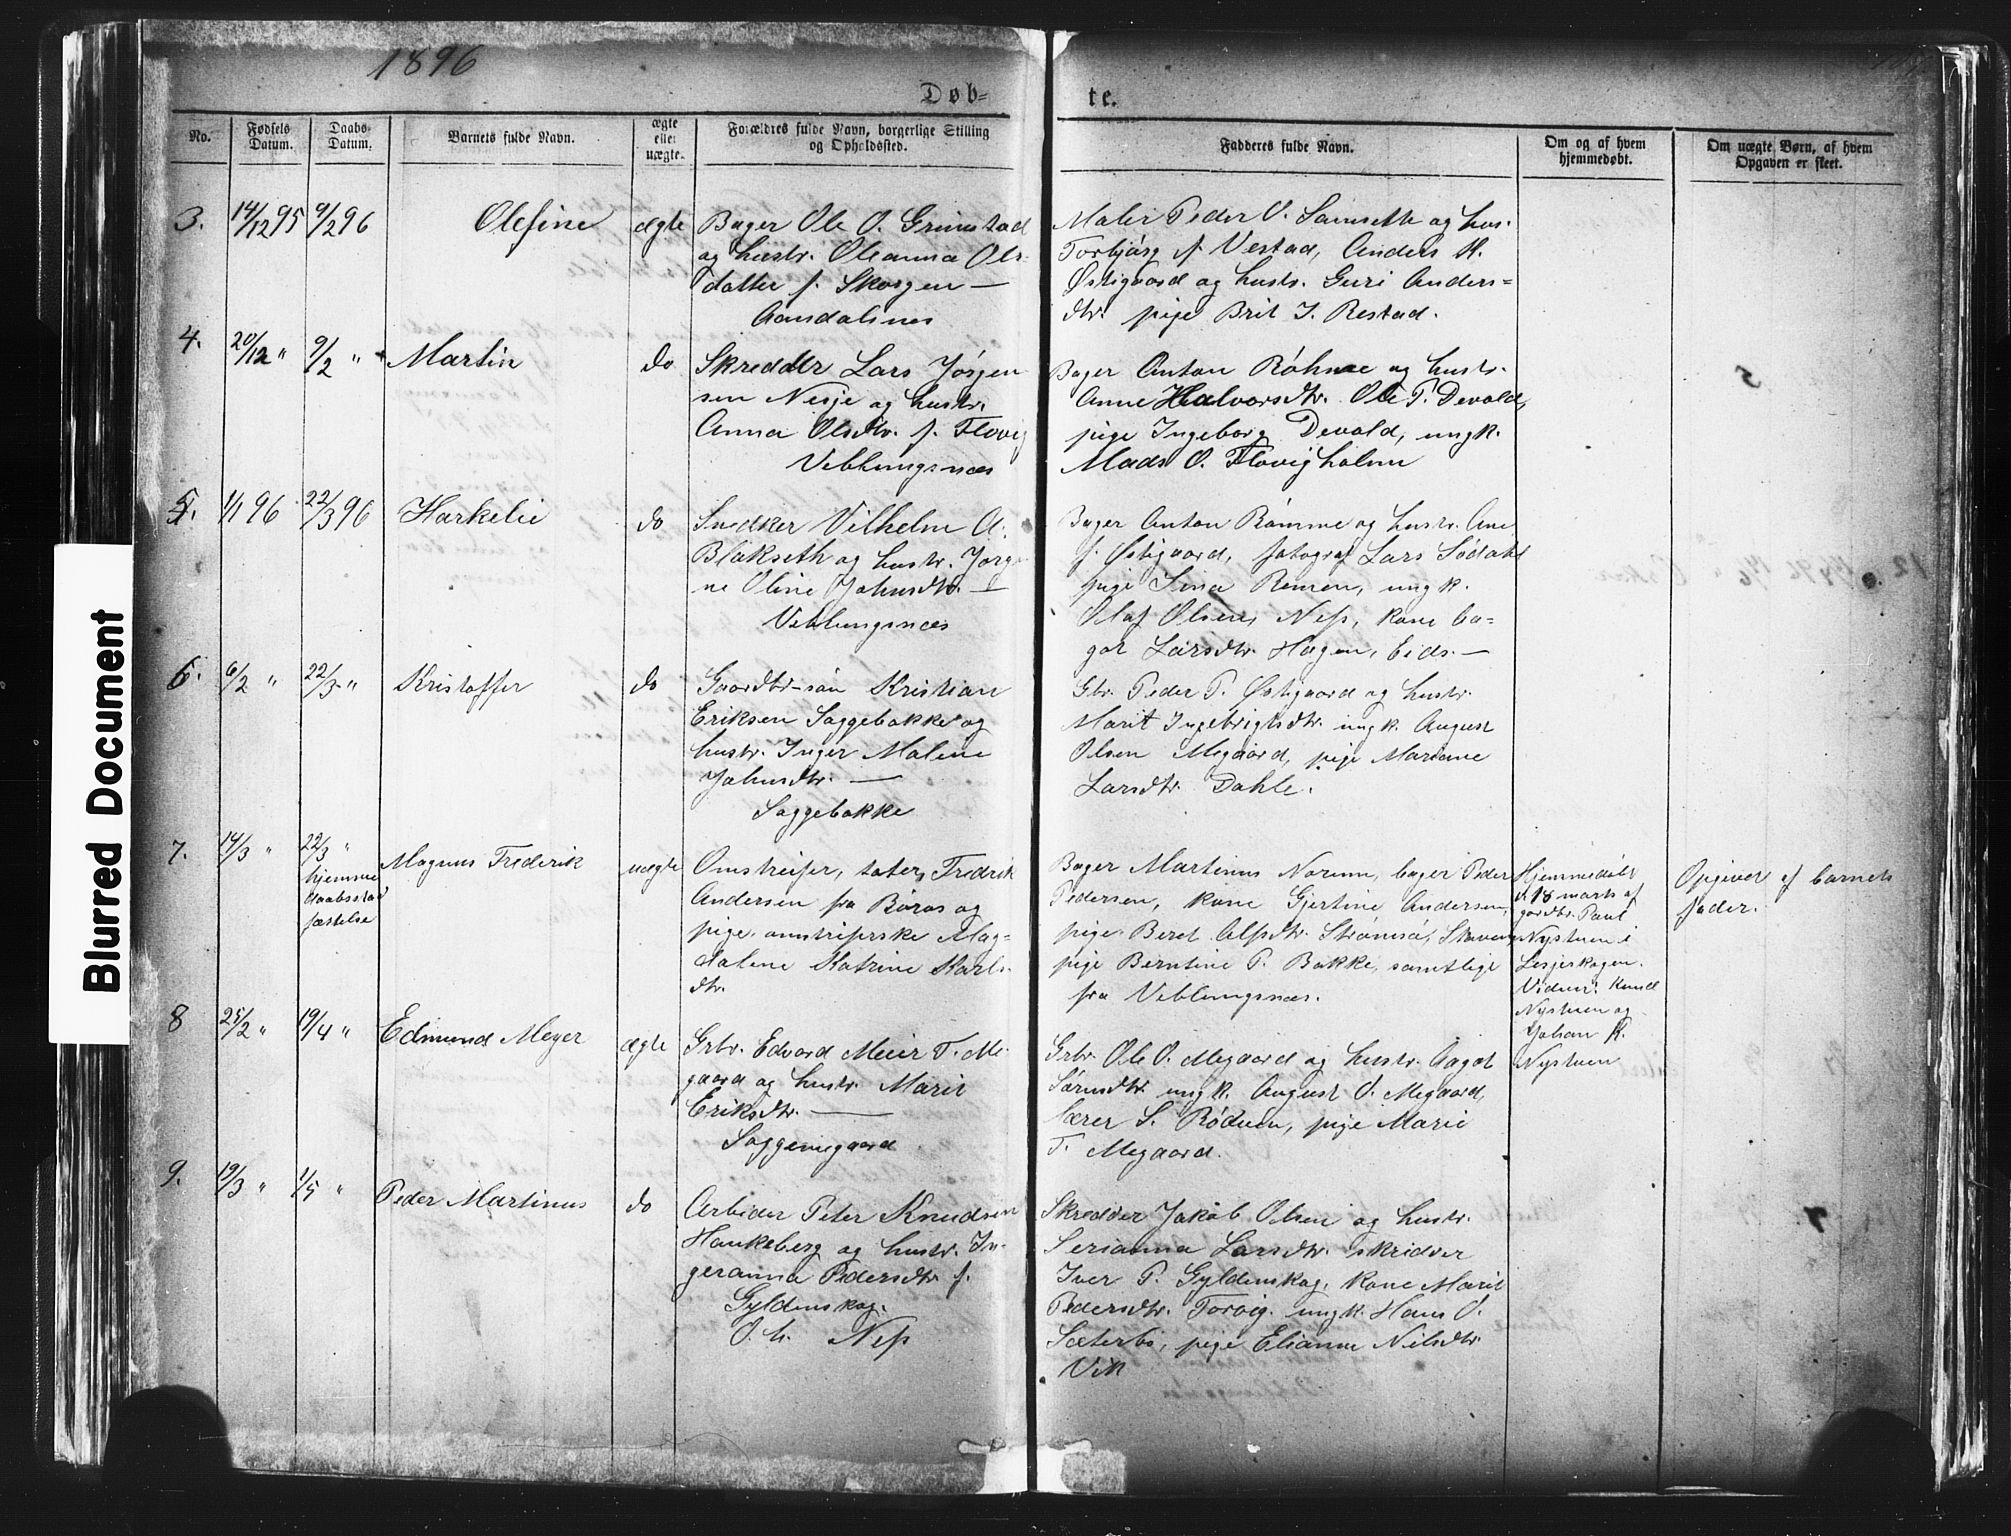 1896
Døb-
te.
No.
Fødsels Datum.
Daabs Datum.
Barnets fulde Navn.
ægte eller uægte.
Forældres fulde Navn, borgerlige Stilling og Opholdssted.
Fadderes fulde Navn.
Om og af hvem hjemmedøbt.
Om uægte Børn, af hvem Opgaven er skeet.
3. 14/12 95 9/2 96 Olefine ægte
Bager Ole O. Grimstad
og hustr. Oleanna Ols-
datter f. Skorgen —
Aandalsnes
Maler Peder O. Samseth og hus.
Torbjørg f. Vestad, Anders A.
Østigaard og hustr. Guri Anders=
dtr. pige Brit J. Restad.
4. 20/12 " 9/2 " Martin do
Skredder Lars Jørgen
sen Nesje og hustr.
Anna Olsdtr. f. Flovig
Veblungsnæs
Bager Anton Röhme og hustr.
Anne Halvorsdtr. Ole P. Devold,
pige Ingeborg Devold, ungk.
Mads O. Flovigholm
5. 1/1 96 22/3 96 Harkelie do
Snedker Vilhelm A.
Blakseth og hustr. Jørgi
ne Oline Johnsdtr. —
Veblungsnæs
Bager Anton Römme og hustr. Ane
f. Østigaard, fotograf Lars Sødahl
pige Sina Remen, ungk.
Olaf Olsen Ness, kone Aa=
got Larsdtr. Hagen, Eids. —
6. 6/2 " 22/3 " Kristoffer do
Gaardbr-søn Kristian
Eriksen Soggebakke og
hustr. Inger Malene
Johnsdtr. —
Soggebakke
Gbr. Peder P. Østigaard og hustr.
Marit Ingebrigtsdtr. ungk. August
Olsen Megaard, pige Mariane
Larsdtr. Dahle.
7. 14/3 " 22/3 " Magnus Frederik uægte
hjemme
daabsstad
fæstelse
Omstreifer, tater, Fredrik
Andersen fra Börøs og
pige omstreiferske Mag=
dalene Katrine Karls-
dtr.
Bager Martinus Norum, bager Peder
Pedersen, kone Gjertine Andersen,
pige Beret Alfsdtr. Strømsa,
pige Berntine P. Bakke, samtlige
fra Veblungsnæs.
Hjemmedøbt
d. 18 marts af
gardbr. Paul
Nystuen i
Lesjeskogen.
Vidner: Knud
Nystuen og
Johan K.
Nystuen
Opgivet af barnets
fader.
8 25/2 " 19/4 " Edmund Meyer ægte
Grbr. Edvard Meier T. Me-
gaard og hustr. Marit
Eriksdtr. —
Soggemegaard
Grbr. Ole O. Megaard og hustr. Aagot
Sørnsdtr. ungk. August O. Megaard,
lærer S. Rödven, pige Marie
T. Megaard.
9. 19/3 " 1/5 " Peder Martinus do
Arbeider Peter Knudsen
Haukeberg og hustr. In-
geranna Pedersdtr. f.
Gyldenskog.
O. h. Ness
Skredder Jakob Olsen og hustr.
Serianna Larsdtr. skredder
Iver P. Gyldenskog, kone Marit
Pedersdtr. Torvig. ungk. Hans O.
Sæterbø, pige Elianna Nilsdtr.
Vik
Blurred Document